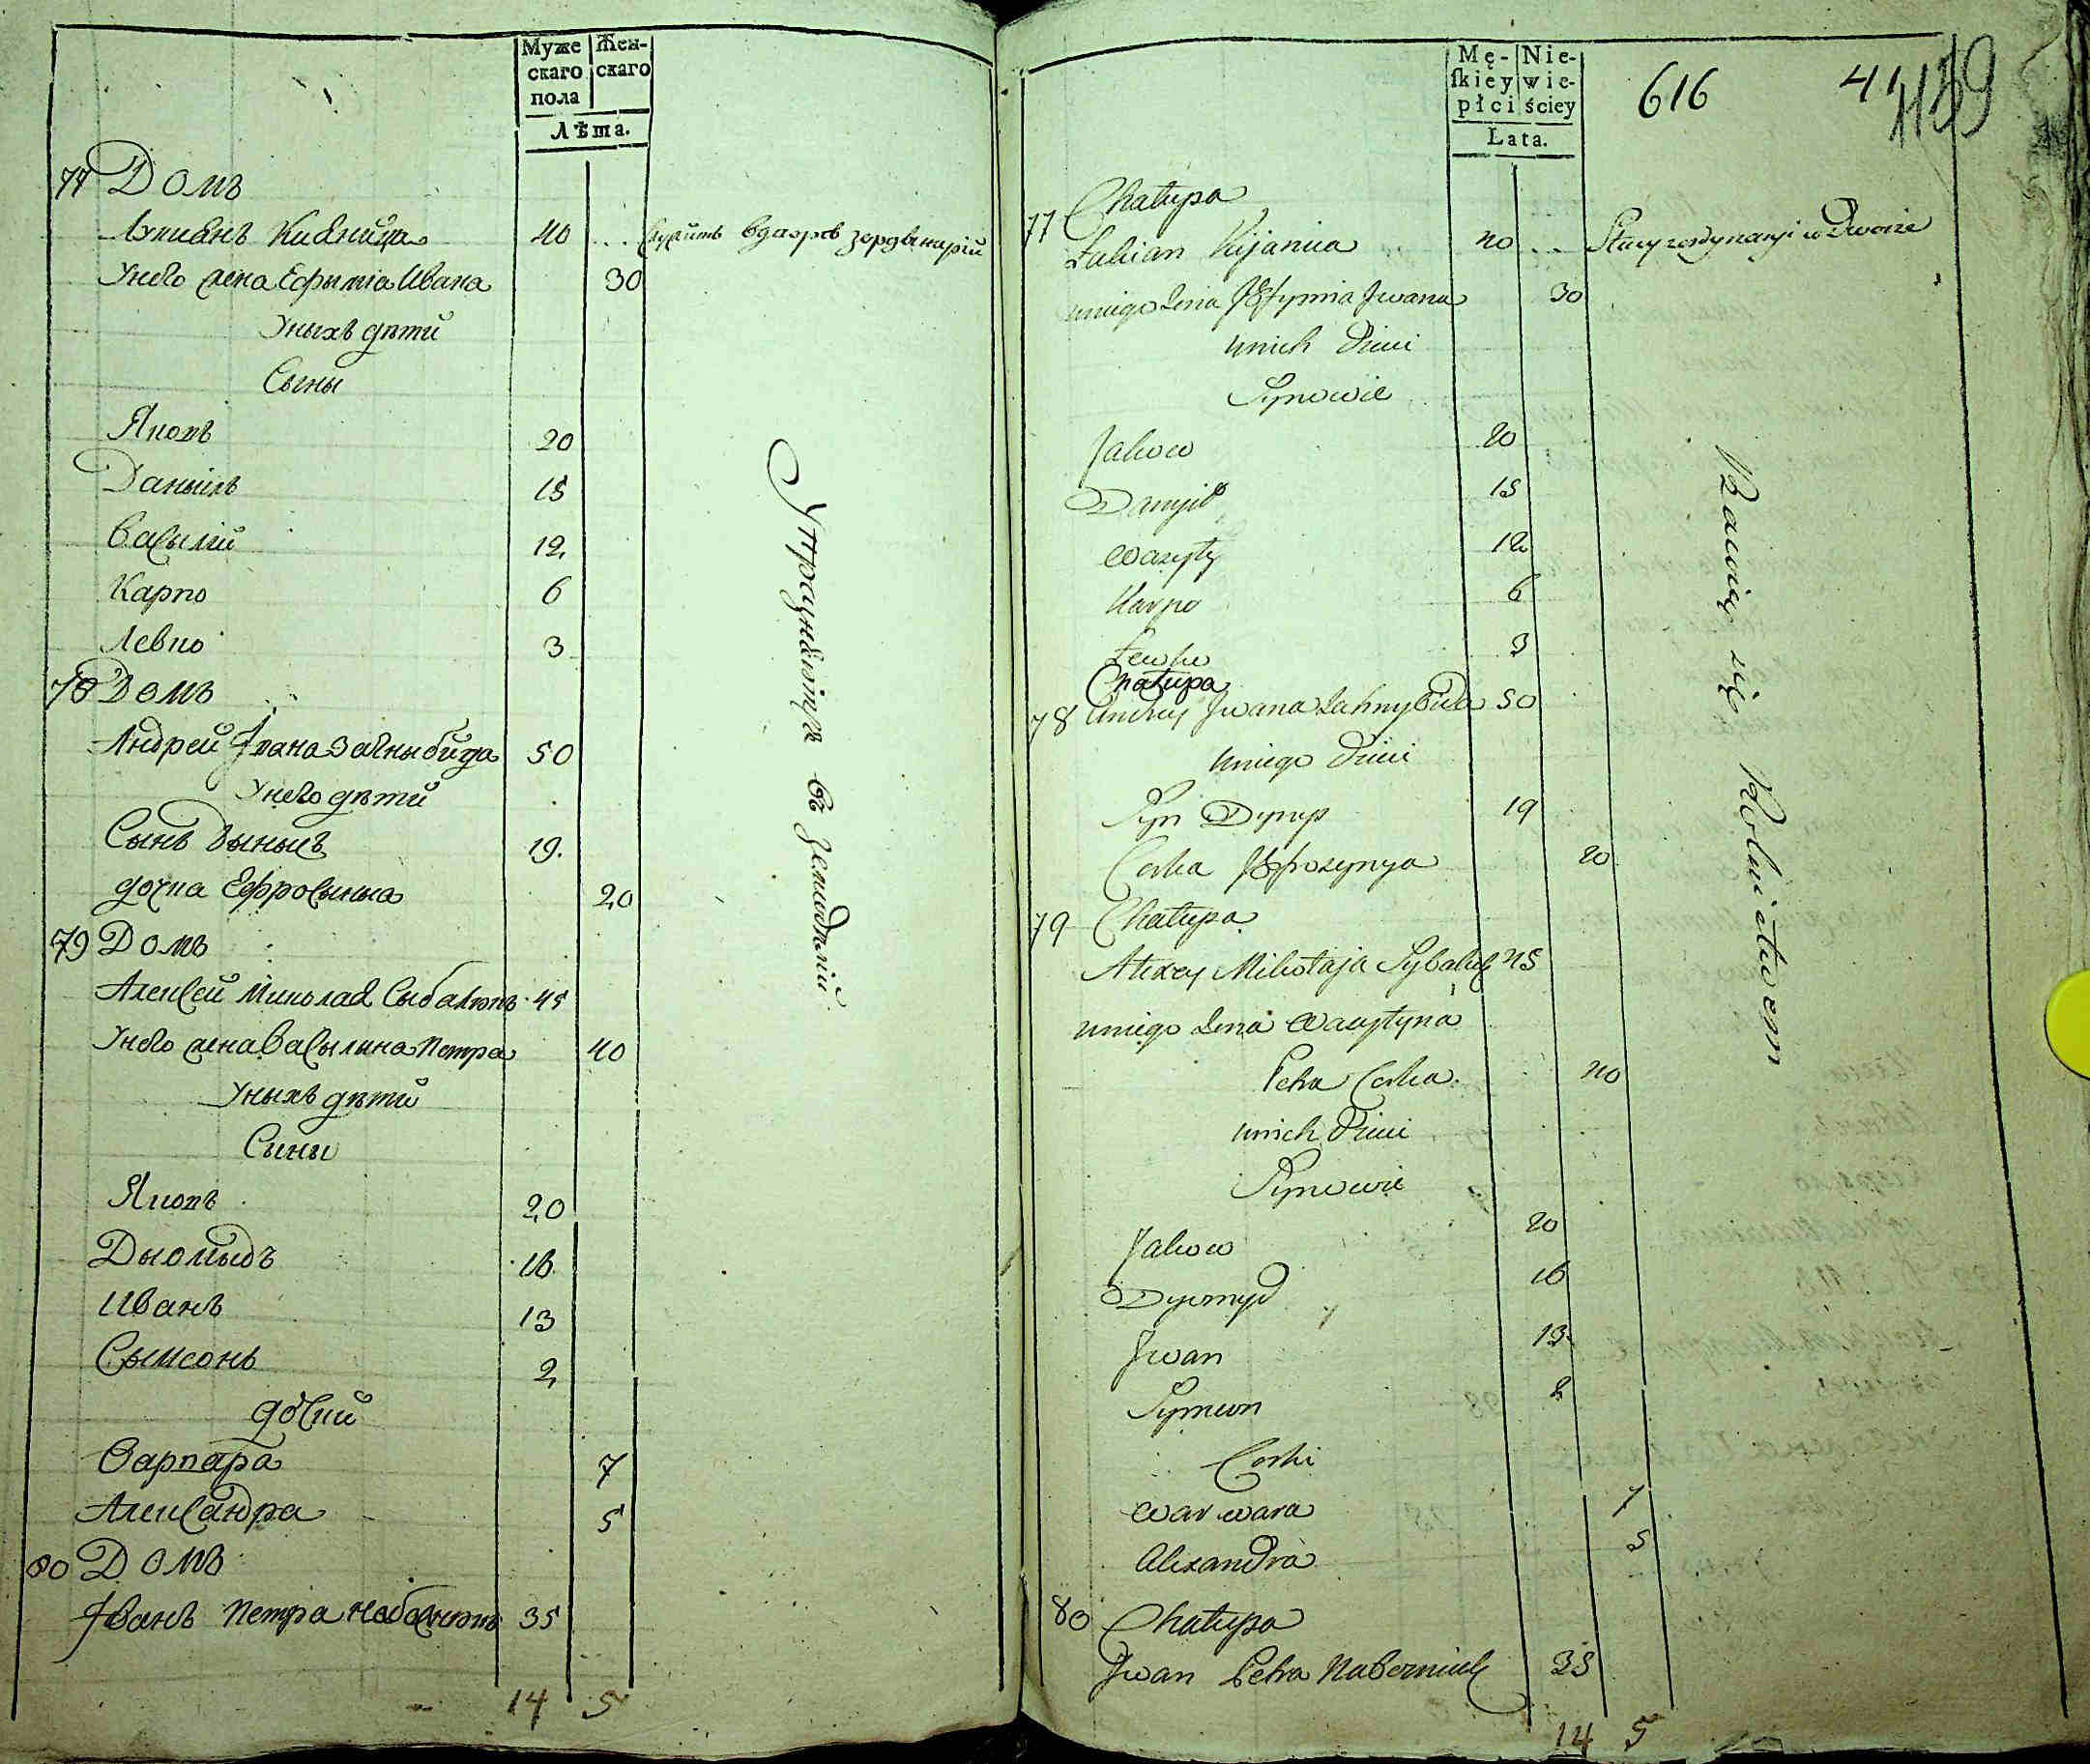 Муже
скаго
пола
Жен-
скаго
Лѣта.
77 Домъ
Лукиянъ Кияница 40 ...
Унего жена Ефымiа Ивана 30
Уныхъ дѣти
Сыны
Яковъ 20
Даныилъ 15
Васылiй 12
Карпо 6
Левко 3
78 Домъ
Андрей Ивана Загныбида 50
Унего дѣти
Сынъ Дыныcъ 19.
дочка Ефросыныа 20
79 Домъ
Алексей Миколая Сыбалюкъ 45
Унего жена Васылина Петра 40
Уныхъ дѣти
Сыны
Яковъ 20
Дыомыдъ 16
Иванъ 13
Сымеонъ 2
дочки
Варвара 7
Александра 5
80 Домъ
Иванъ Петра 35
14 5
Упражняются въ земледѣлiи
Mę-
skiey
płci
Nie-
wie-
ściey
Lata.
616
41
1159
77 Chałupa
Łukian Kijanica 40 ... w Dworze
uniego Żona Jefymia Jwana 30
unich Dzieci
Synowie
Jakow 20
Danyił 15
Wasyly 12
Karpo 6
Lewko 3
Chałupa
78 Andrey Jwana Zahnybida 50
uniego Dzieci
Syn Dynys 19
Corka Jefrosynya 20
79 Chałupa
Alexey Mikołaja Sybaluk 45
uniego Żona Wasylyna
Petra Corka 40
unich Dzieci
Synowie
Jakow 20
Dyomyd 16
Jwan 13
Symeon 2
Corki
Warwara 7
Alexandra 5
80 Chałupa
Jwan Petra 35
14 5
Bawię się Rolnictwem